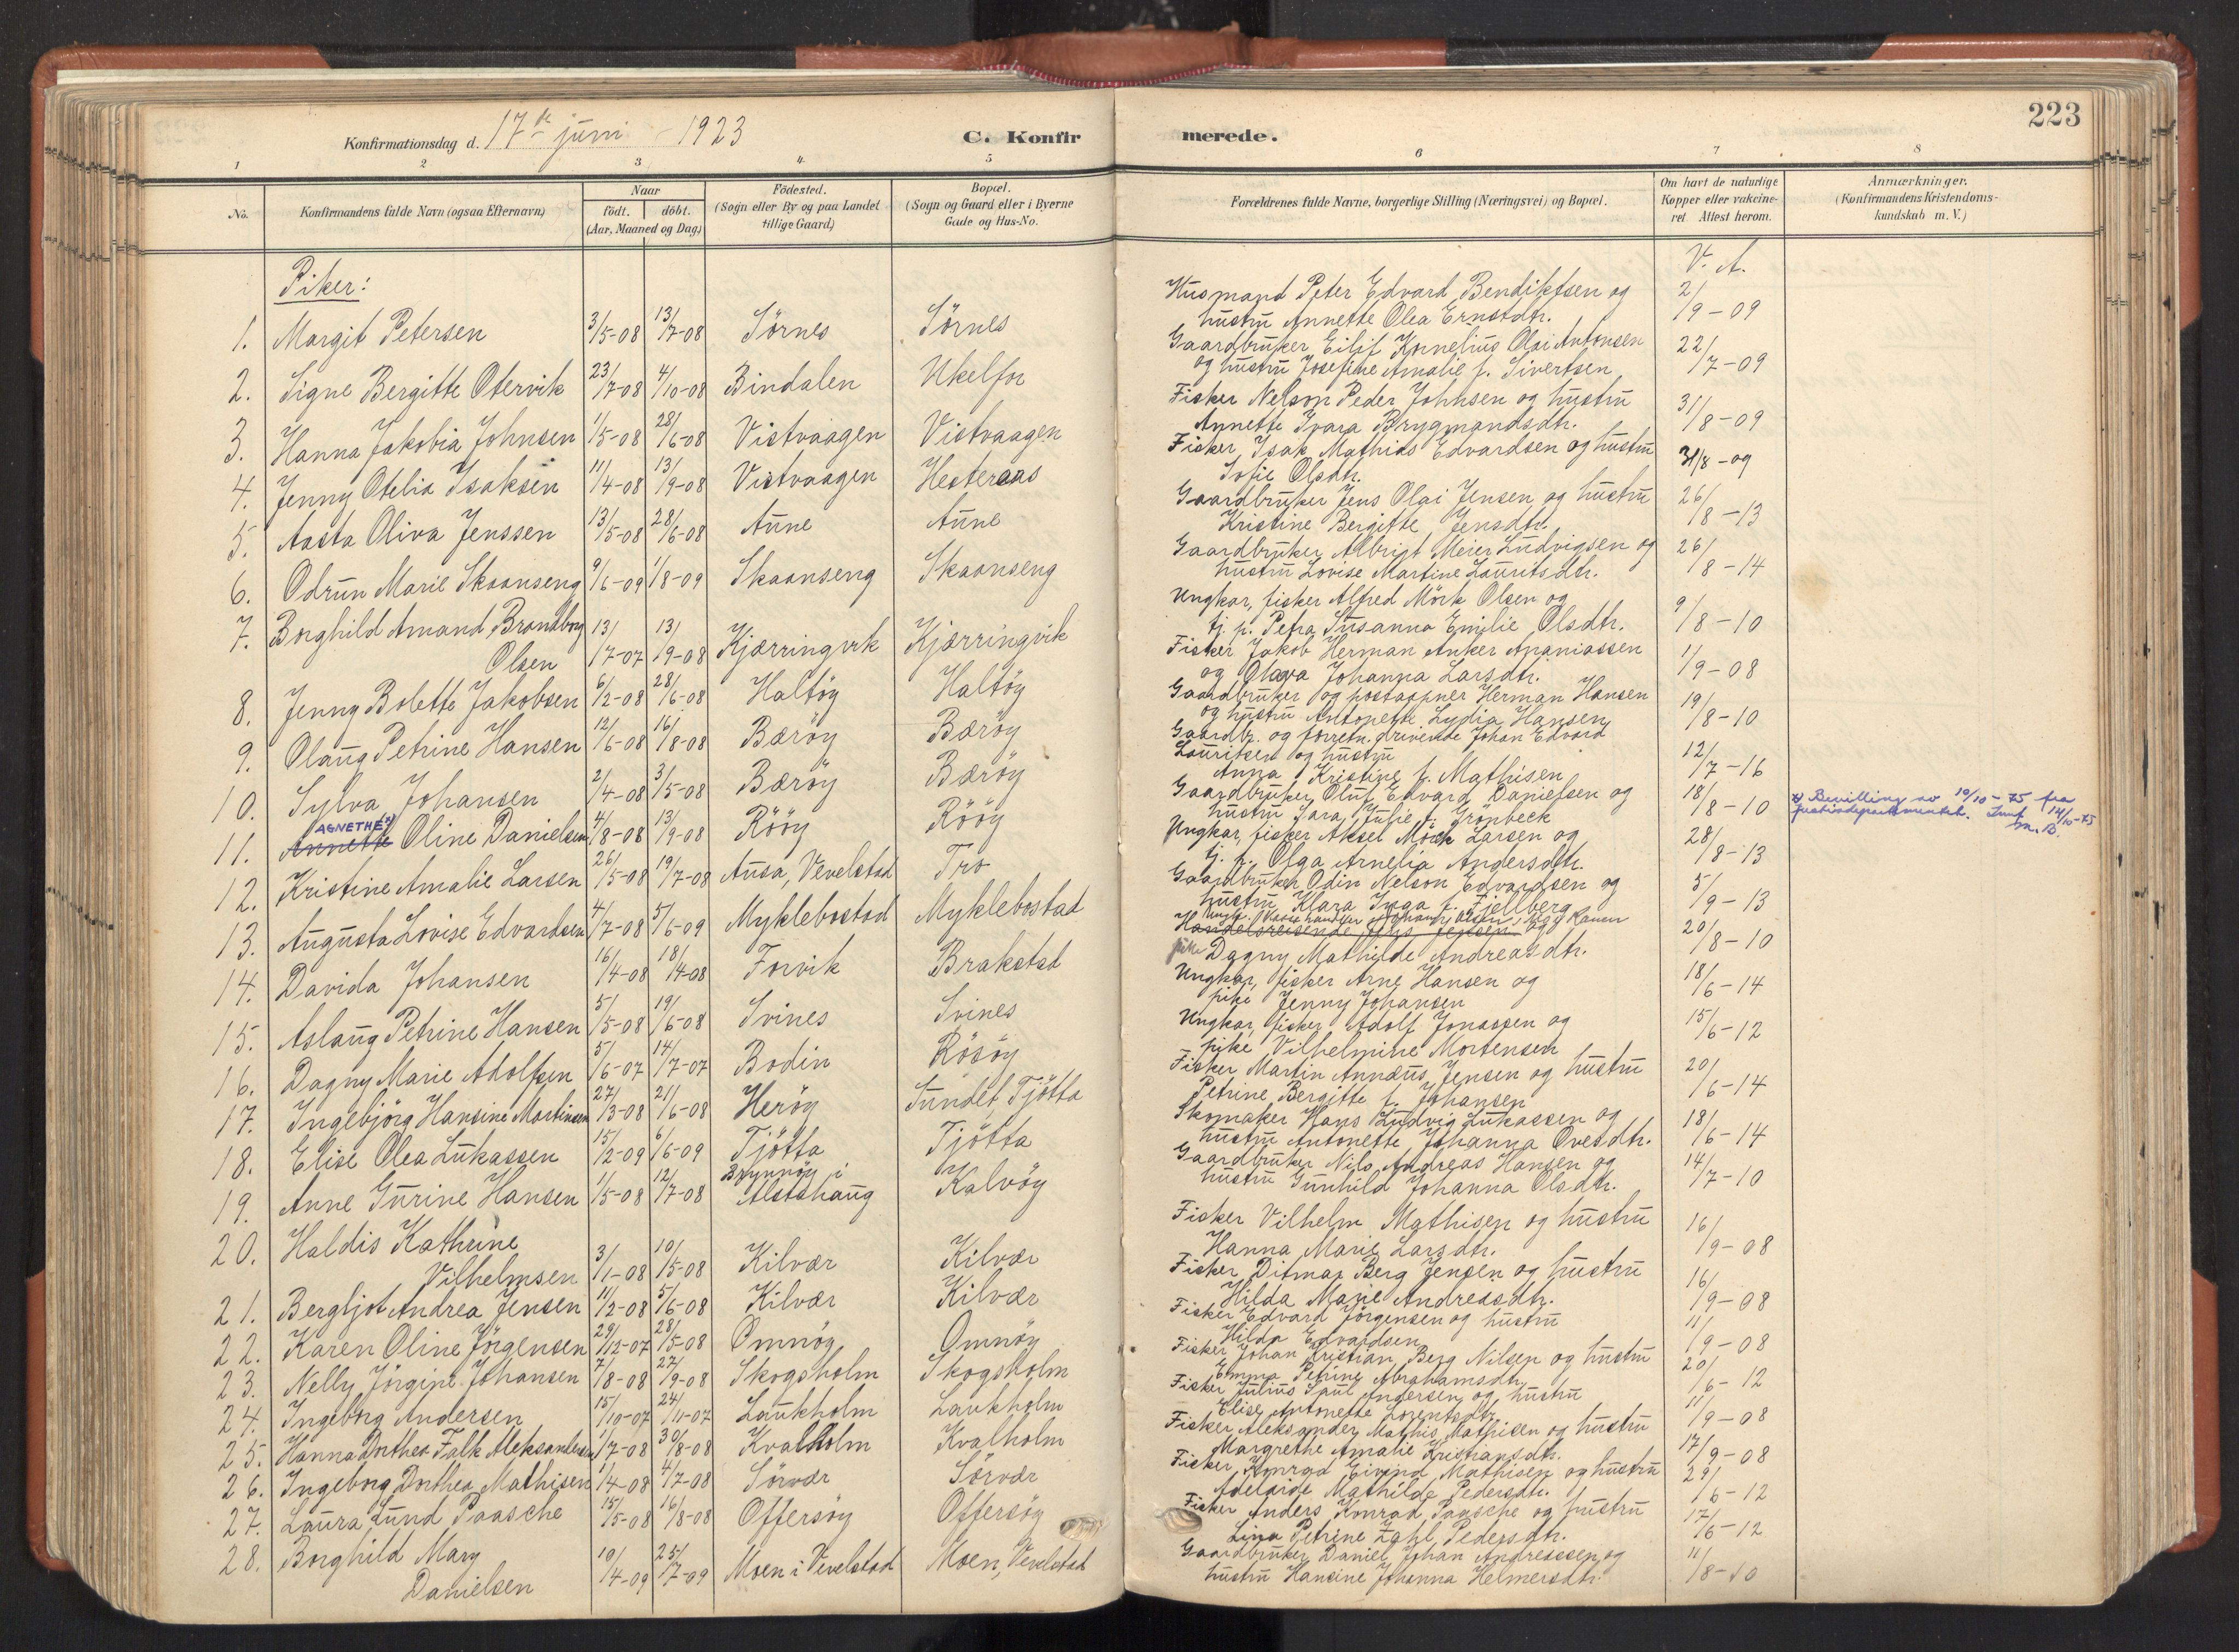 223
Konfirmationsdag d. 17de juni - 1923
C. Konfirmerede.
1 2 3 4 5 6 7 8
No.
Konfirmandens fulde Navn (ogsaa Efternavn)
Naar
födt. döbt.
(Aar, Maaned og Dag)
Födested.
(Sogn eller By og paa Landet
tillige Gaard)
Bopæl.
(Sogn og Gaard eller i Byerne
Gade og Hus-No.
Forældrenes fulde Navne, borgerlige Stilling (Næringsvei) og Bopæl.
Om havt de naturlige
Kopper eller vakcine-
ret Attest herom.
Anmærkninger.
(Konfirmandens Kristendoms-
kundskab m. V.)
Piker:
V. A.
1. Margit Petersen 3/5-08 13/7-08 Sörnes Sörnes
Husmand Peter Edvard Bendiktsen og
hustru Annette Olea Ernstdtr. 2/9-09
2. Signe Bergitte Otervik 23/7-08 4/10-08 Bindalen Ukelfor
Gaardbruker Eilif Kornelius Olai Antonsen
og hustru Josefine Amalie f. Sivertsen 22/7-09
3. Hanna Jakobia Johnsen 1/5-08 28/6-08 Vistvaagen Vistvaagen
Fisker Nelson Peder Johnsen og hustru
Annette Ivara Brygmandsdtr. 31/8-09
4. Jenny Otelia Isaksen 11/4-08 13/9-08 Vistvaagen Hesteraas
Fisker Isak Mathias Edvardsen og hustru
Sofie Olsdtr. 31/8-09
5. Aasta Oliva Jenssen 13/5-08 28/6-08 Aune Aune
Gaardbruker Jens Olai Jensen og hustru
Kristine Bergitte Jensdtr. 26/8-13
6. Odrun Marie Skaanseng 9/6-09 1/8-09 Skaanseng Skaanseng
Gaardbruker Albrigt Meier Ludvigsen og
hustru Lovise Martine Lauritsdtr. 26/8-14
7. Borghild Amand Brandborg
Olsen 13/7-07 13/9-08 Kjærringvik Kjærringvik
Ungkar, fisker Alfred Mörk Olsen og
tj. p. Petra Susanna Emilie Olsdtr. 9/8-10
8. Jenny Bolette Jakobsen 6/2-08 28/6-08 Haltöy Haltöy
Fisker Jakob Herman Anker Ananiassen
og Olava Johanna Larsdtr. 1/9-08
9. Olaug Petrine Hansen 12/6-08 16/8-08 Bæröy Bæröy
Gaardbruker og postaapner Herman Hansen
og hustru Antonette Lydia Hansen 19/8-10
10. Sylva Johansen 2/4-08 3/5-08 Bæröy Bæröy
Gaardb. og forretn. drivende Johan Edvard
Lauritsen og hustru
Anna Kristine f. Mathisen 12/7-16
AGNETHE x)
11. Annette Oline Danielsen 4/8-08 13/9-08 Rööy Rööy
Gaardbruker Oluf Edvard Danielsen og
hustru Sara Julie f. Grönbeck 18/8-10
x) Bevilling av 10/10-75 fra
Justisdepartementet. Innf. 14/10-75
12. Kristine Amalie Larsen 26/5-08 19/7-08 Ausa, Vevelstad Tro
Ungkar, fisker Aksel Mörk Larsen og
tj. p. Olga Arnelia Andersdtr. 28/8-13
13. Augusta Lovise Edvardsen 4/7-08 5/6-09 Myklebostad Myklebostad
Gaardbruker Odin Nelson Edvardsen og
hustru Klara Inga f. Fjellberg 5/9-13
14. Davida Johansen 16/4-08 18/4-08 Forvik Brakstad
Handelsreisende Jens Jensen og
pike Dagny Mathilde Andreasdtr. 20/8-10
15. Aslaug Petrine Hansen 5/5-08 19/6-08 Svines Svines
Ungkar, fisker Arne Hansen og
pike Jenny Johansen 18/6-14
16. Dagny Marie Adolfsen 5/6-07 14/7-07 Bodin Rösöy
Ungkar, fisker Adolf Jonassen og
pike Vilhelmine Mortensen 15/6-12
17. Ingebjörg Hansine Martinsen 27/3-08 21/6-08 Heröy Sundet, Tjötta
Fisker Martin Annæus Jensen og hustru
Petrine Bergitte f. Johansen 20/6-14
18. Elise Olea Lukassen 15/2-09 6/6-09 Tjötta Tjötta
Skomaker Hans Ludvig Lukassen og
hustru Antonette Johanna Ovesdtr. 18/6-14
19. Anne Gurine Hansen 1/5-08 12/7-08 Brynnöy i
Alstahaug Kalvöy
Gaardbruker Nils Andreas Hansen og
hustru Gunhild Johanna Olsdtr. 14/7-10
20. Haldis Kathrine
Vilhelmsen 3/1-08 10/5-08 Kilvær Kilvær
Fisker Vilhelm Mathisen og hustru
Hanna Marie Larsdtr. 16/9-08
21. Bergljot Andrea Jensen 11/2-08 5/6-08 Kilvær Kilvær
Fisker Ditmar Berg Jensen og hustru
Hilda Marie Andreasdtr. 16/9-08
22. Karen Oline Jörgensen 29/12-07 28/5-08 Omnöy Omnöy
Fisker Edvard Jörgensen og hustru
Hilda Edvardsen 11/9-08
23. Nelly Jörgine Johansen 7/8-08 27/9-08 Skogsholm Skogsholm
Fisker Johan Kristian Berg Nilsen og hustru
Emma Petrine Abrahamsdtr. 20/6-12
24. Ingeborg Andersen 15/10-07 24/11-07 Laukholm Laukholm
Fisker Julius Saul Andersen og hustru
Elise Antonette Lorentsdtr. 11/9-08
25. Hanna Dorthea Falk Aleksandersen 1/7-08 30/8-08 Kvalholm Kvalholm
Fisker Aleksander Mathis Mathisen og hustru
Margrethe Amalie Kristiansdtr. 17/9-08
26. Ingeborg Dorthea Mathisen 1/4-08 4/7-08 Sörvær Sörvær
Fisker Konrad Eivind Mathisen og hustru
Adelaide Mathilde Pedersdtr. 29/6-12
27. Laura Lund Paasche 15/5-08 16/8-08 Offersöy Offersöy
Fisker Anders Konrad Paasche og hustru
Lina Petrine Zahl Pedersdtr. 17/6-12
28. Borghild Mary
Danielsen 10/4-09 25/7-09 Moen i Vevelstad Moen, Vevelstad
Gaardbruker Daniel Johan Andreassen og
hustru Hansine Johanna Helmersdtr. 11/8-10